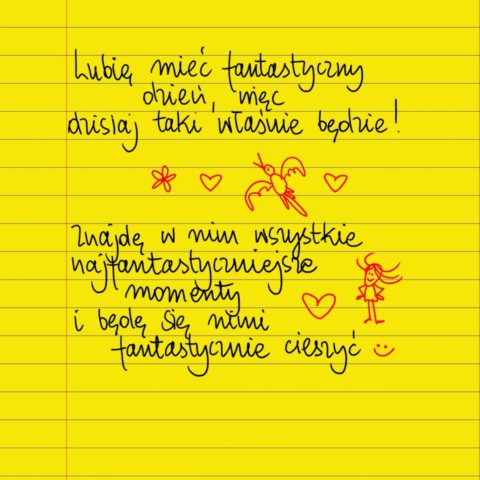 Lubię mieć fantastyczny
dzień, więc
dzisiaj taki właśnie będzie!
Znajdę w nim wszystkie
najfantastyczniejsze
momenty
i będę się nimi
fantastycznie cieszyć